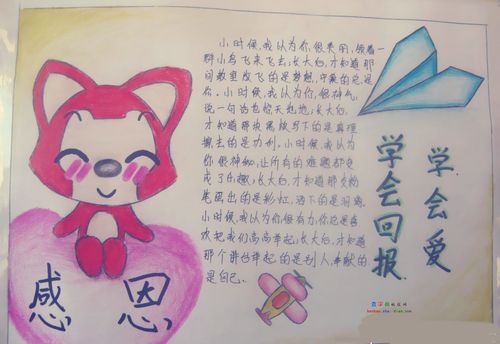 小时候,我认为你很美丽,领着一
群小鸟飞来飞去;长大后,才知道那
间教室放飞的是梦想,守巢的总是
你。小时候,我认为你很神气,
说一句话也惊天动地;长大后,
才知道那块黑板写下的是真理
擦去的是功利。小时候,我认为
你很神秘,让所有的难题都变
成了乐趣;长大后,才知道那支粉
笔画出的是彩虹,洒下的是泪滴。
小时候,我认为你很有力,你总是喜
欢把我们高高举起;长大后,才知道
那个讲台举起的是别人,奉献的
是自己。
学会回报
学会爱
感恩